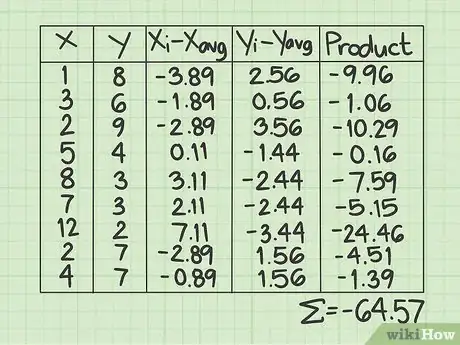 X Y Xi-Xavg Yi-Yavg Product
1 8 -3.89 2.56 -9.96
3 6 -1.89 0.56 -1.06
2 9 -2.89 3.56 -10.29
5 4 0.11 -1.44 -0.16
8 3 3.11 -2.44 -7.59
7 3 2.11 -2.44 -5.15
12 2 7.11 -3.44 -24.46
2 7 -2.89 1.56 -4.51
4 7 -0.89 1.56 -1.39
Σ=-64.57
wikiHow